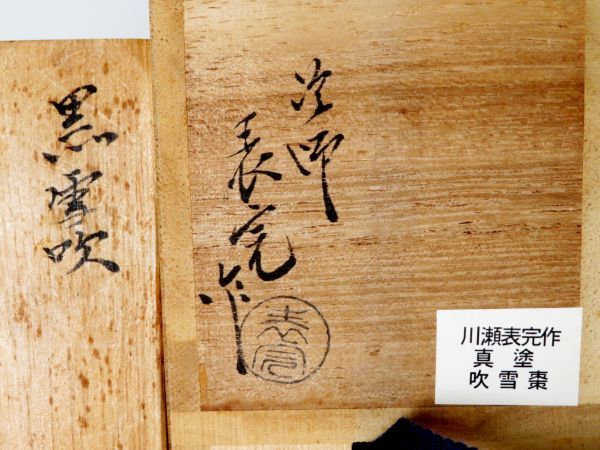 黒雪吹
塗師
表完作
表完
川瀬表完作
真塗
吹雪棗